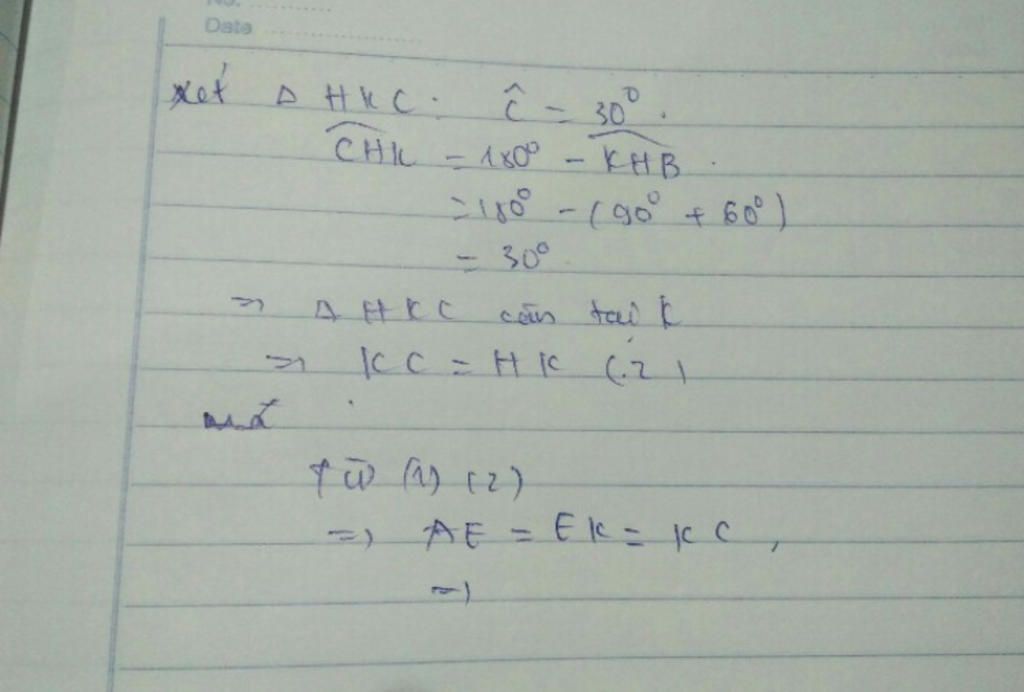 No. ..........
Date ....................
xét Δ HKC : Ĉ = 30⁰.
CHK = 180⁰ - KHB.
= 180⁰ - (90⁰ + 60⁰)
= 30⁰
=> Δ HKC cân tại K
=> KC = HK (2)
mà
từ (1) (2)
=> AE = EK = KC,
=>